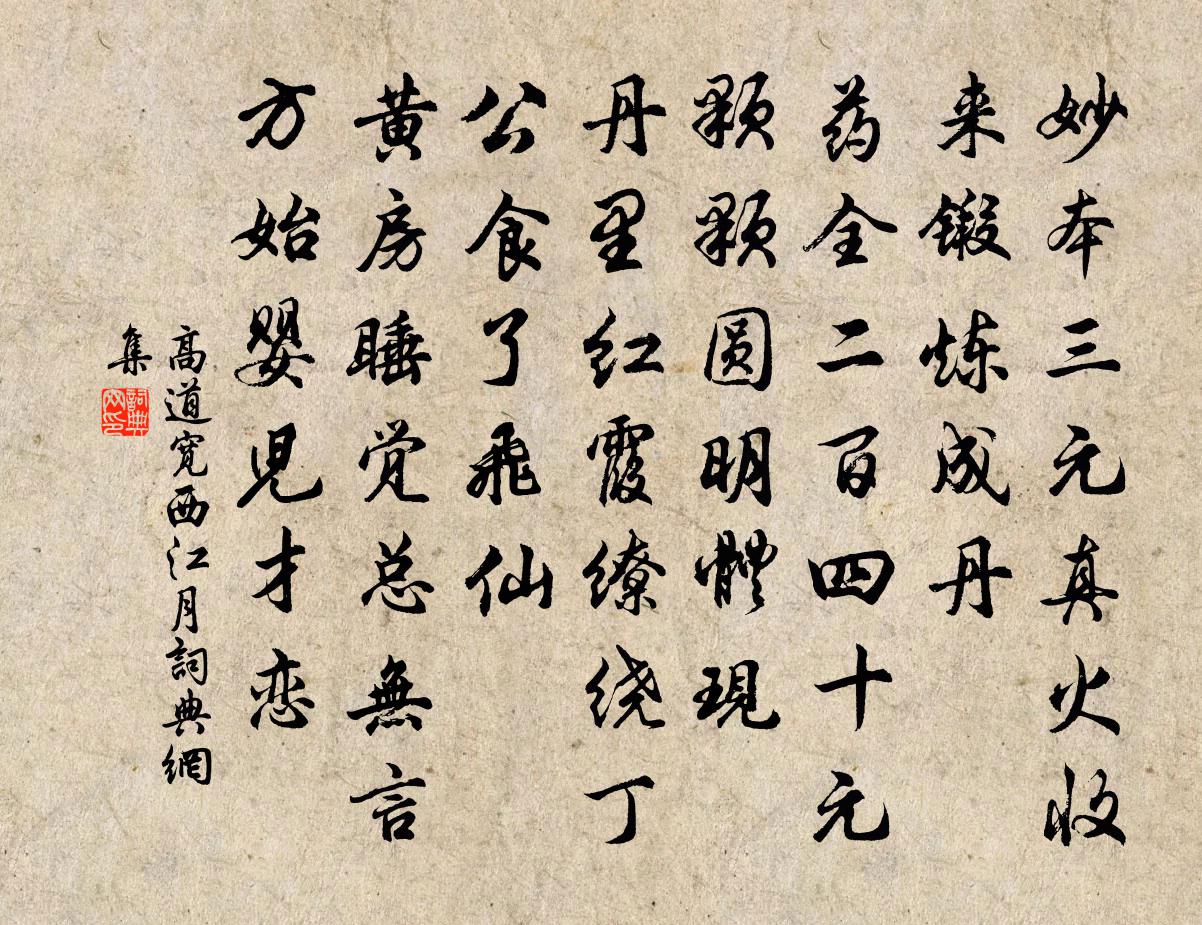 妙本三元真火收
来锻炼成丹
药全二百四十元
颗颗圆明體現
丹里红霞缭绕丁
公食了飛仙
黄房睡觉总無言
方始嬰児才恋
高道宽西江月詞典網
集
詞典網印